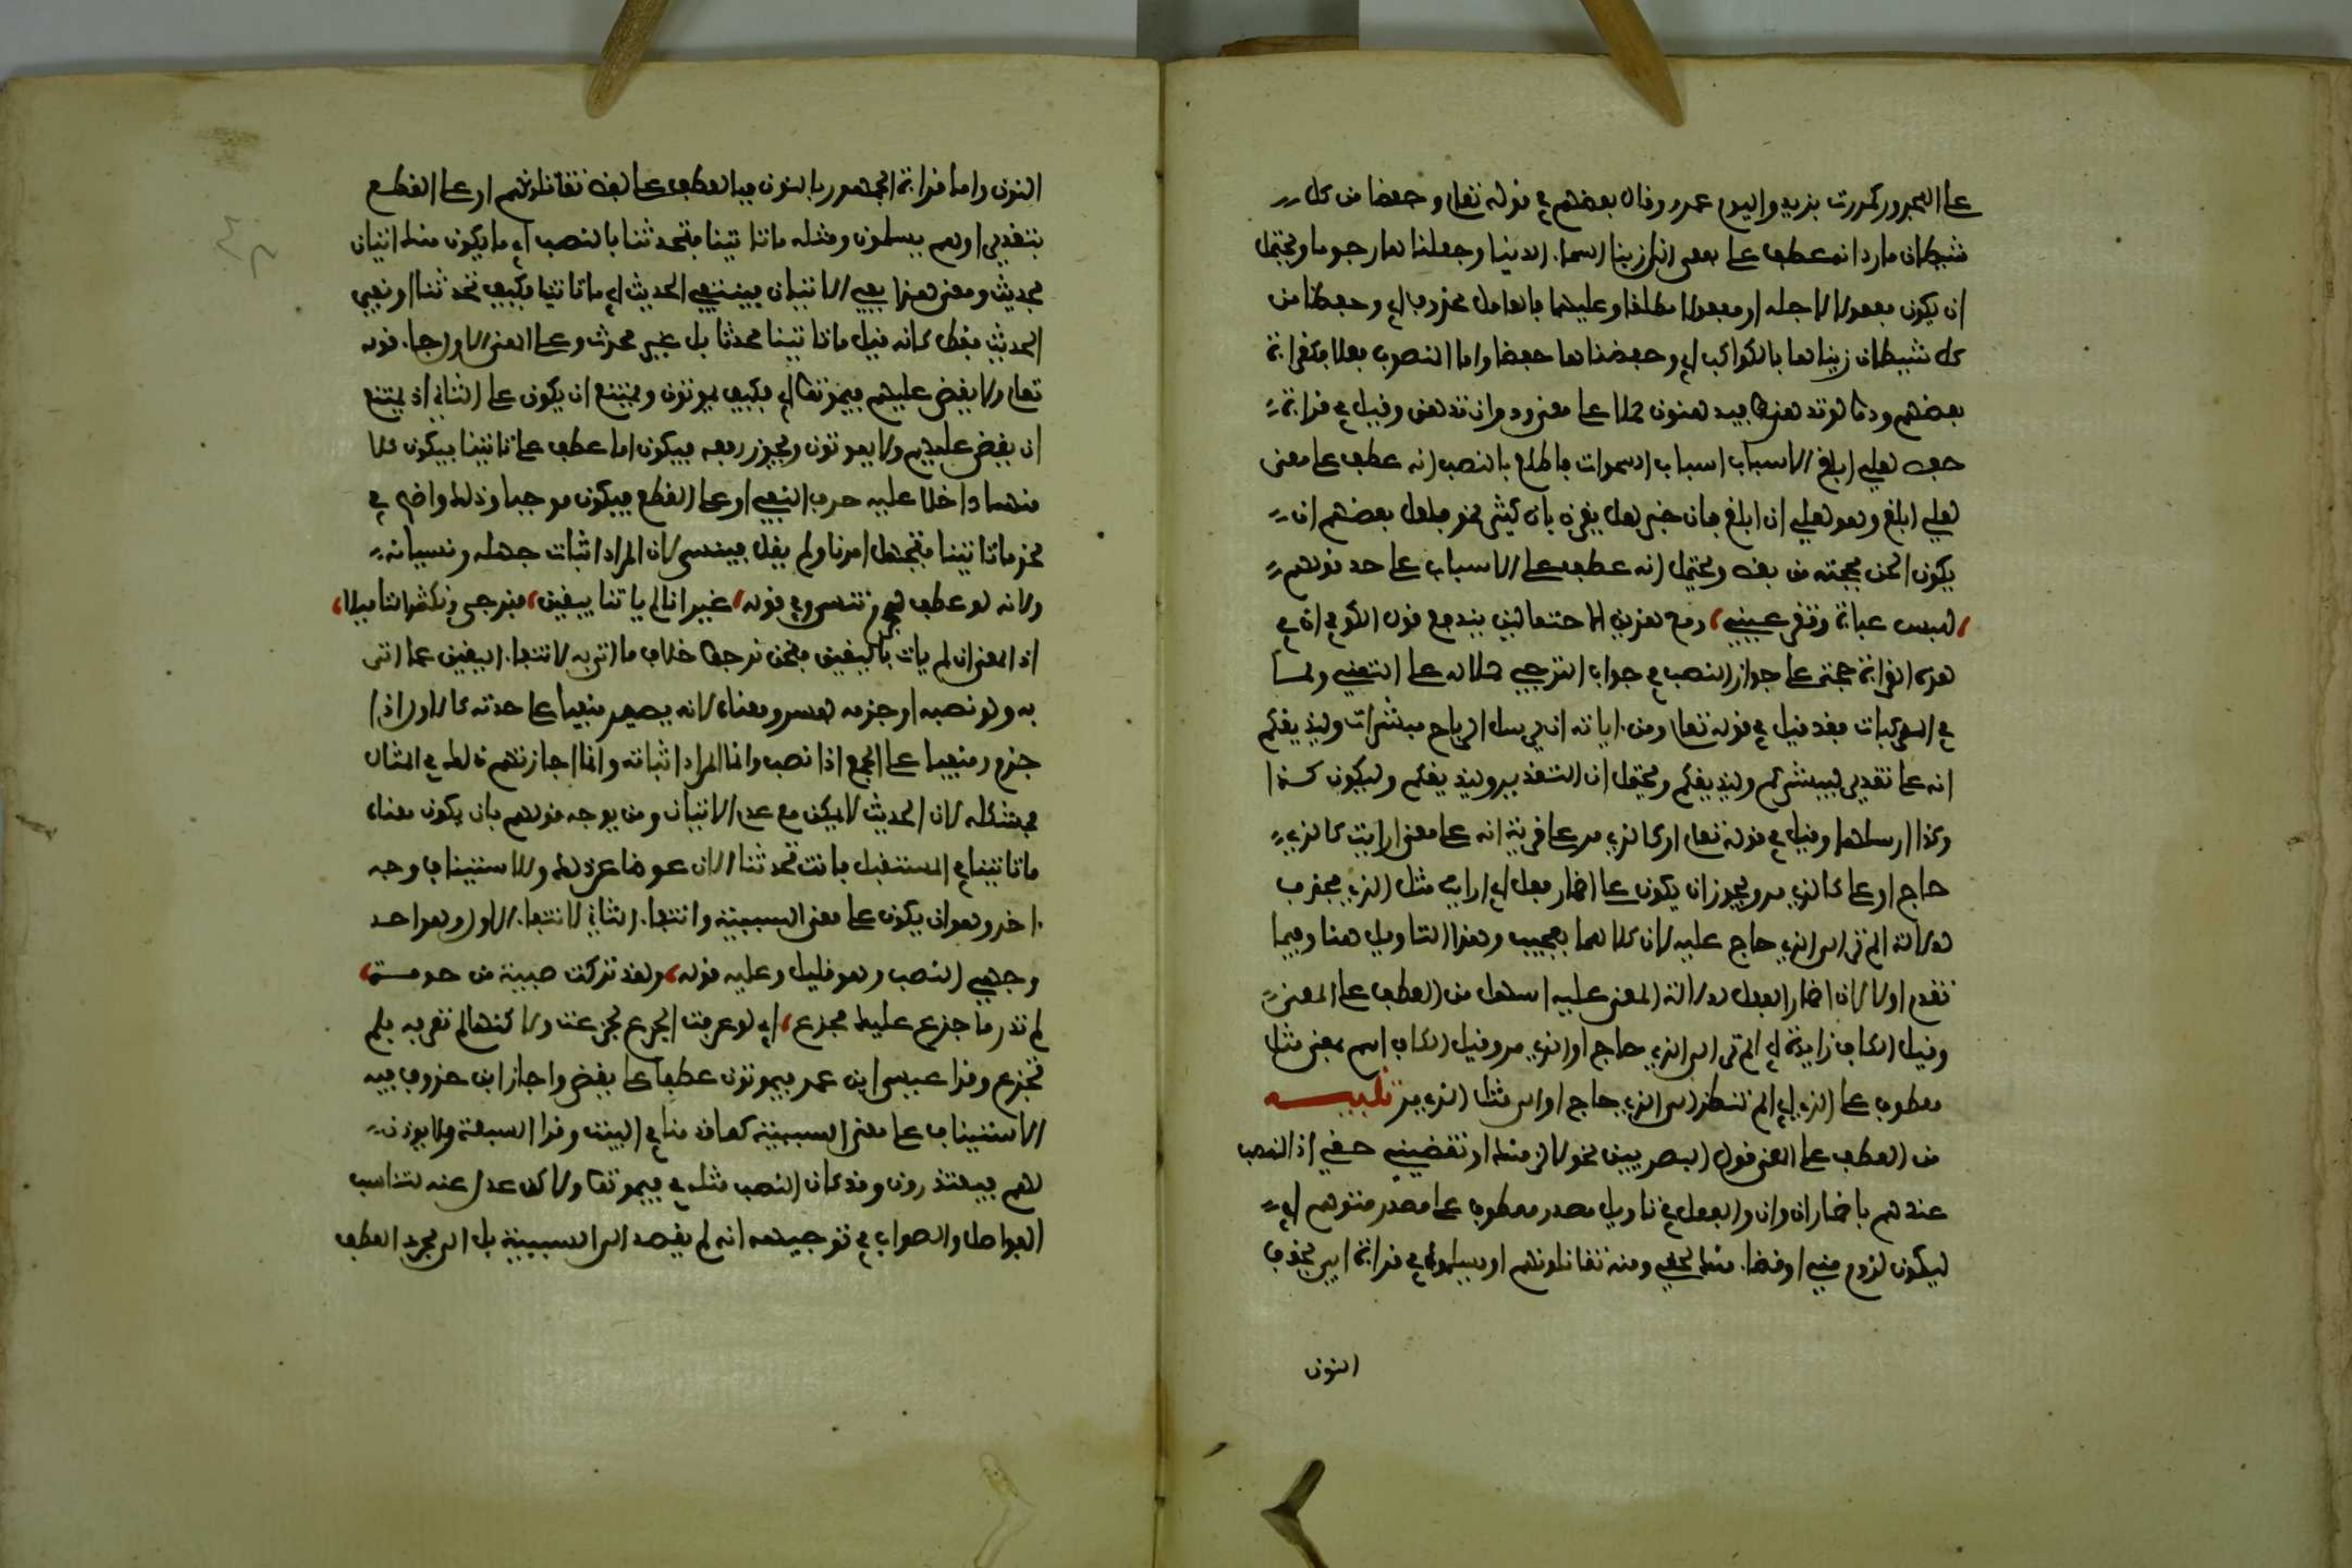 على المجرور كمررت بزيد واليوم عمرو وقال بعضهم في قوله تعالى وحفظا من كل
شيطان مارد انه عطف على معنى انا زينا السماء الدنيا وجعلناها رجوما ويحتمل
ان يكون مفعولا لاجله او مفعولا مطلقا وعليهما فالعامل محذوف اي وحفظا من
كل شيطان زيناها بالكواكب اي وحفظناها حفظا واما المنصوب فعلا فكقراءة
بعضهم ودوا لو تدهن فيدهنون حملا على معنى ودوا ان تدهن وقيل في قراءة
حفص لعلي ابلغ الاسباب اسباب السموات فاطلع بالنصب انه عطف على معنى
لعلي ابلغ وهو لعلي ان ابلغ فان خبر لعل يقرن بان كثيرا نحو فلعل بعضكم ان
يكون الحن بحجته من بعض ويحتمل انه عطف على الاسباب على حد قولهم
للبس عباءة وتقر عيني ومع هذين الاحتمالين يندفع قول الكوفي ان في
هذه القراءة حجة على جواز النصب في جواب الترجي حملا له على التمني واما
في المركبات فقد قيل في قوله تعالى ومن اياته ان يرسل الرياح مبشرات وليذيقكم
انه على تقدير ليبشركم وليذيقكم ويحتمل ان التقدير وليذيقكم وليكون كذا
وكذا ارسلها وقيل في قوله تعالى او كالذي مر على قرية انه على معنى ارايت كالذي
حاج او على كالذي مر ويجوز ان يكون على اضمار فعل اي ارايت مثل الذي فحذف
لدلالة الم تر الى الذي حاج عليه لان كلاهما تعجيب وهذا التاويل هنا وفيما
تقدم اولى لان اضمار الفعل لدلالة المعنى عليه اسهل من العطف على المعنى
وقيل الكاف زايدة اي الم تر الى الذي حاج او الذي مر وقيل الكاف اسم بمعنى مثل
معطوف على الذي اي الم تنظر الى الذي حاج او الى مثل الذي مر تنبيه
من العطف على المعنى قول البصريين نحو لالزمنك او تقضيني حقي اذ النصب
عندهم باضمار ان وان والفعل في تاويل مصدر معطوف على مصدر متوهم اي
ليكون لزوم مني او قضاء منك لحقي ومنه تقاتلونهم او يسلموا في قراءة ابي بحذف
النون
النون واما قراءة الجمهور بالنون فبالعطف على لفظ تقاتلونهم او على القطع
بتقدير او هم يسلمون ومثله ما تاتينا فتحدثنا بالنصب اي ما يكون منك اتيان
فحديث ومعنى هذا نفي الاتيان فينتفي الحديث اي ما تاتينا فكيف تحدثنا او نفي
الحديث فقط كانه قيل ما تاتينا محدثا بل غير محدث وعلى المعنى الاول جاء قوله
تعالى ولا يقضى عليهم فيموتوا اي فكيف يموتون ويمتنع ان يكون على الثاني اذ يمتنع
ان يقضى عليهم ولا يموتون ويجوز رفعه فيكون اما عطف على تاتينا فيكون كلا
منهما داخلا عليه حرف النفي او على القطع فيكون موجبا وذلك واضح في
نحو ما تاتينا فتجهل امرنا ولم يقل فينسى لان المراد اثبات جهله ونسيانه
ولانه لو عطف لجزم تنسى وفي قوله غير انا لم ياتنا بيقين فنرجي ونكثر التاميلا
اذ المعنى ان لم يات باليقين فنحن نرجوا خلاف ما اتى به لانتفاء اليقين عما اتى
به ولو نصبه او جزمه لفسد معناه لانه يصير منفيا على حدته كالاول اذا
جزم ومنفيا على الجمع اذا نصب وانما المراد اثباته وانما اجازتهم ذلك في المثال
فمشكلة لان الحديث لا يمكن مع عدم الاتيان ومن يوجه قولهم بان يكون معناه
ما تاتينا في المستقبل فانت تحدثنا الان عوضا عن ذلك وللاستيناف وجه
اخر وهو ان يكون على معنى السببية وانتفاء الثاني لانتفاء الاول وهو احد
وجهي النصب وهو قليل وعليه قوله ولقد تركت صبية مرحومة
لم تدر ما جزع عليك فتجزع اي لو عرفت الجزع لجزعت ولاكنها لم تعرفه فلم
تجزع وقرا عيسى ابن عمر فيموتون عطفا على يقضى واجاز ابن خروف فيه
الاستيناف على معنى السببية كما قدمنا في البيت وقرا السبعة ولا يوذن
لهم فيعتذرون وقد كان النصب مثله في فيموتوا ولاكن عدل عنه لتناسب
الفواصل والصواب في توجيهه انه لم يقصد الى السببية بل الى مجرد العطف